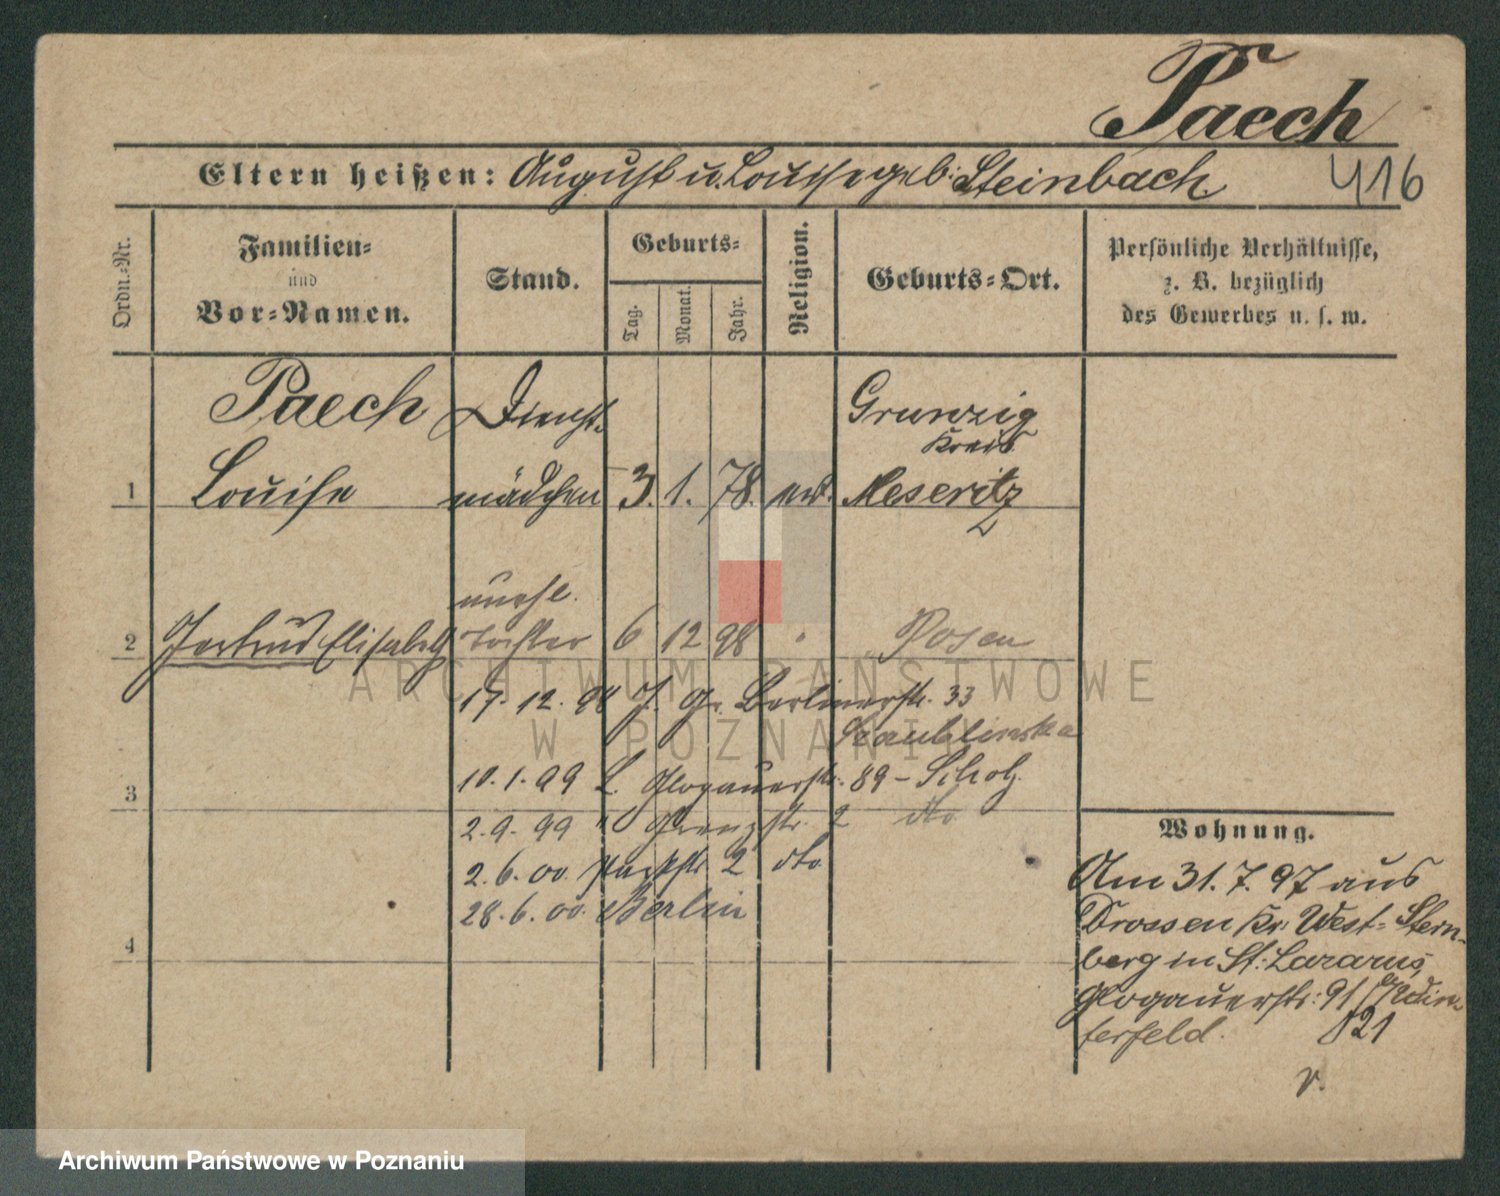 Paech
Eltern heißen: August u. Louise geb. Steinbach.
416
Ordn.-Nr.
Familien-
und
Vor-Namen.
Stand.
Geburts-
Tag.
Monat.
Jahr.
Religion.
Geburts-Ort.
Persönliche Verhältnisse,
z. B. bezüglich
des Gewerbes u. s. w.
Paech Dienst- Grunzig
Kreis
1 Louise mädchen 3. 1. 78. ev. Meseritz
unehl.
2 Gertrud Elisabeth Tochter 6 12 98 " Posen
17. 12. 98 J. Gr. Berlinerstr. 33
10. 1. 99 L. Glogauerstr. 89 - Scholz
3
2. 9. 99 " Grenzstr. 2 dto
2. 6. 00. Parkstr 2 dto
28. 6. 00. Berlin
4
Wohnung.
Am 31. 7. 97 aus
Drossen Kr. West-Stern-
berg in St. Lazarus,
Glogauerstr. 91 Win-
terfeld. 821
v.
ARCHIWUM PAŃSTWOWE
W POZNANIU
Archiwum Państwowe w Poznaniu